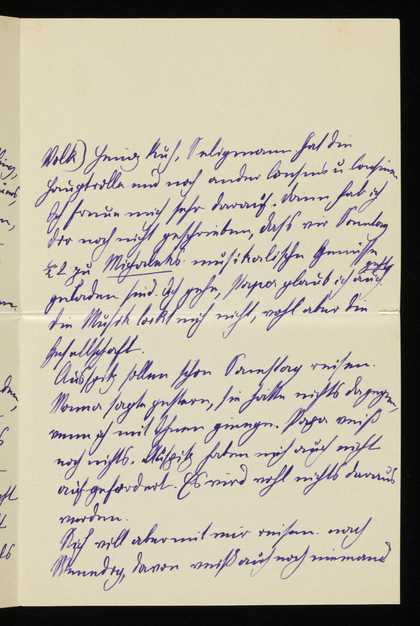 Volk) Heinz Kuh, Seligmann hat die
Hauptrolle und noch andere Cousins u Cousinen
Ich freue mich sehr darauf. dann hab ich
Dir noch nicht geschrieben, daß wir Sonntag
zu musikalische Genüsse
geladen sind. Ich gehe, Papa glaub ich auch
die Musik lockt mich nicht, wohl aber die
Gesellschaft.
Auspitz sollen schon Samstag reisen.
Mama sagte gestern, sie hätte nichts dagegen,
wenn ich mit Ihnen ginge. Papa weiß
noch nichts. Auspitz haben mich auch nicht
aufgefordert. Es wird wohl nichts daraus
werden.
will aber mit mir reisen. nach
Venedig, davon weiß auch noch niemand